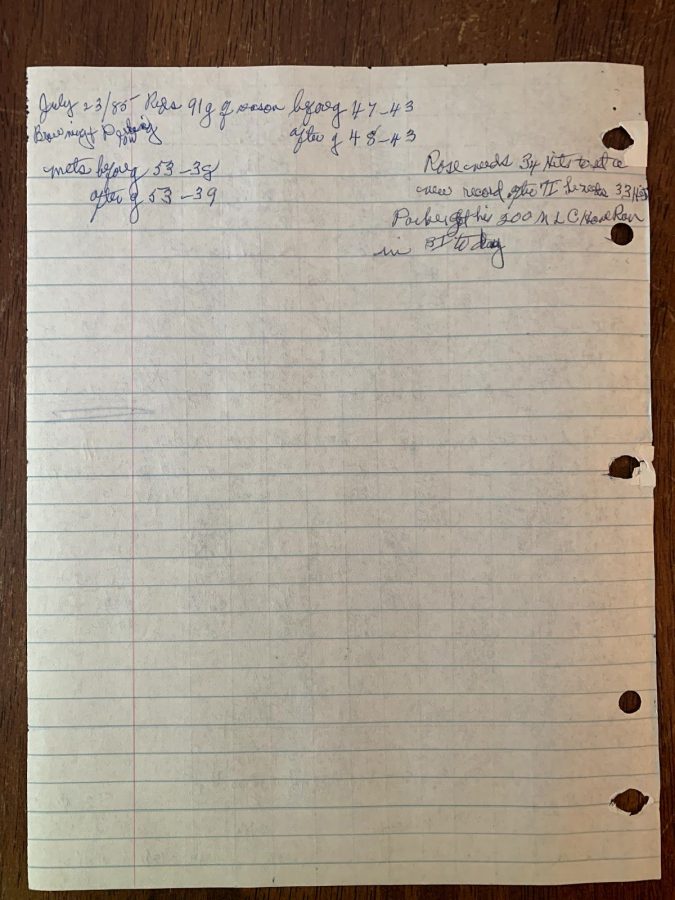 July 23/85 Reds 91g of season before g 47-43
Browning + Darling
after g 48-43
Mets before g 53-38
after g 53-39
Rose needs 34 Hits to set a
new record after TI he needs 33 Hits
Parker got his 200 M L C Home Run
in BI today